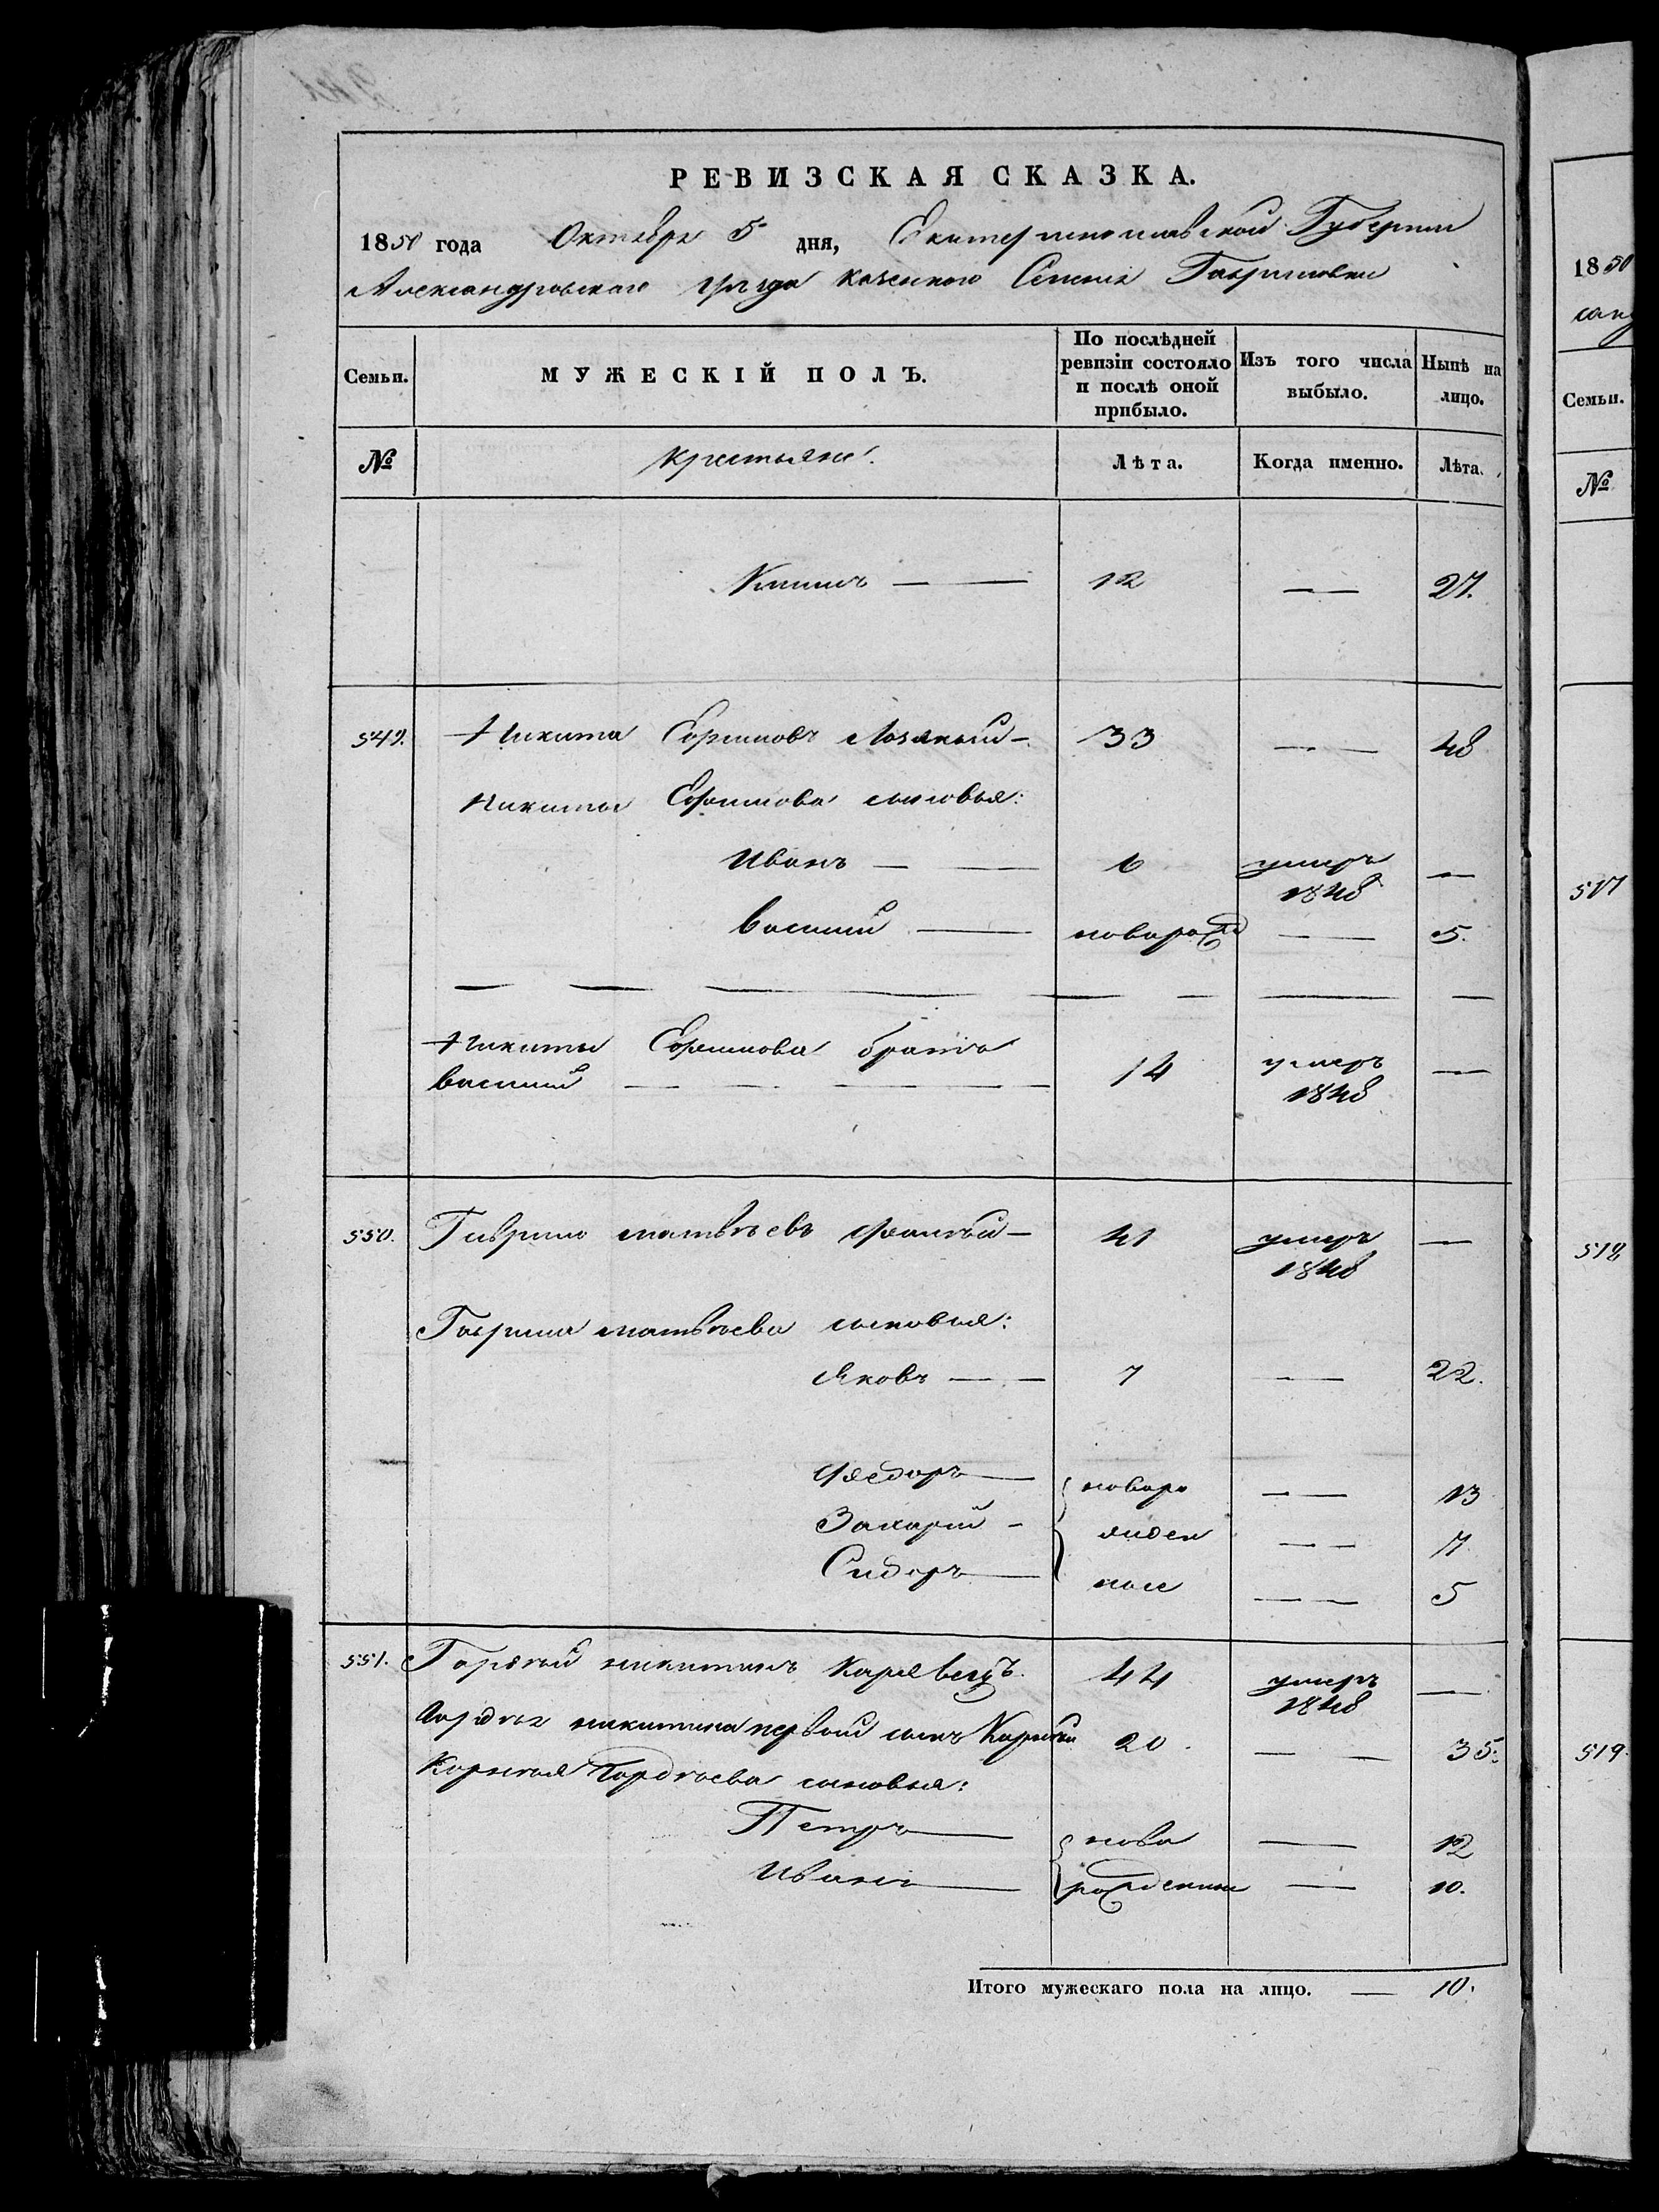 РЕВИЗСКАЯ СКАЗКА.
1850 года Октября 5 дня, Екатеринославской Губернии
Александровскаго уезда казеннаго Селенія Гавриловки
Семьи.
МУЖЕСКІЙ ПОЛЪ.
По послѣдней ревизіи состояло и послѣ оной прибыло.
Изъ того числа выбыло.
Нынѣ на лицо.
№ Крестьяне. Лѣта. Когда именно. Лѣта.
Климъ — 12 — 27.
549. Никита Ефимовъ — 33 — 48
Никиты Ефимова сыновья:
Иванъ — 6 умеръ 1848 —
Василий — новорожд — 5.
Никиты Ефимова братъ
Василий — 14 умеръ 1848 —
550. Гаврило Матвѣевъ — 41 умеръ 1848 —
Гаврила Матвѣева сыновья:
Яковъ — 7 — 22.
Федоръ — новоро — 13
Захарий — жден — 7
Сидоръ — ные — 5
551. Гордѣй Никитинъ 44 умеръ 1848 —
Гордѣя Никитина первой сынъ Корнѣй 20. — 35.
Корнѣя Гордѣева сыновья:
Петръ — ново — 12
Иванъ — рожденные — 10.
Итого мужескаго пола на лицо. — 10.
1850
Семьи.
№
517
518
519